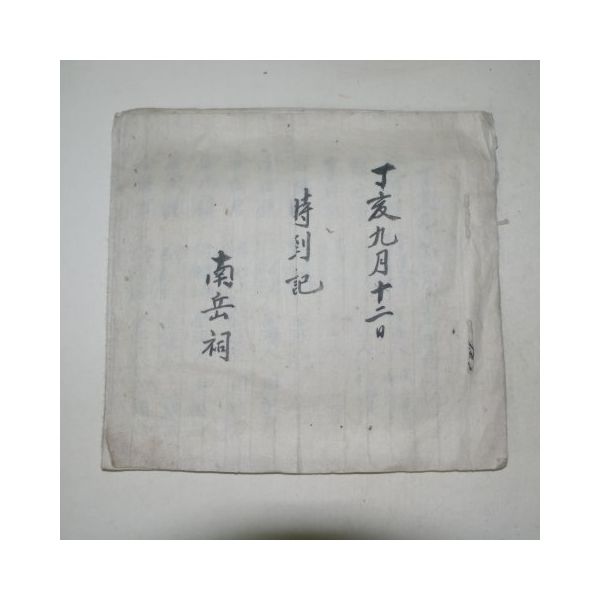 丁亥九月十二日
時到記
南岳祠